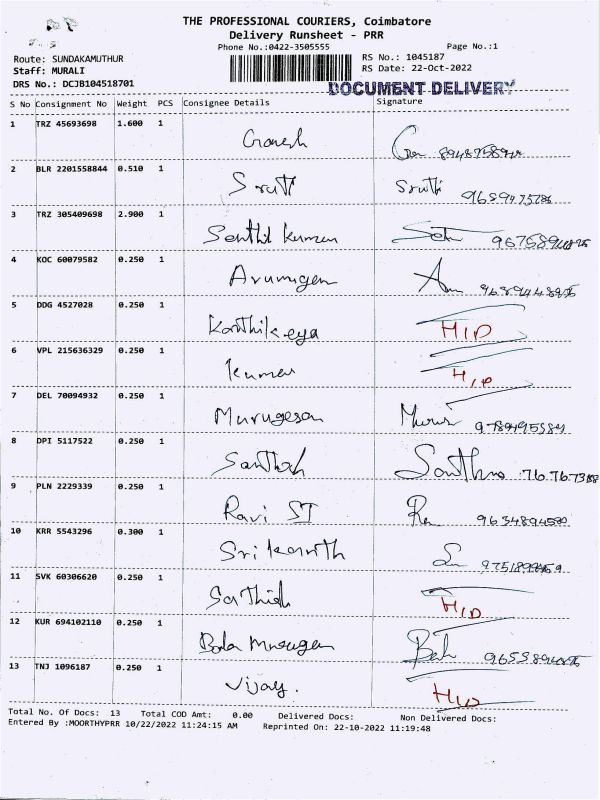 THE PROFESSIONAL COURIERS, Coimbatore
Delivery Runsheet - PRR
Phone No.:0422-3505555 Page No.:1
Route: SUNDAKAMUTHUR RS No.: 1045187
Staff: MURALI RS Date: 22-Oct-2022
DRS No.: DCJB104518701
DOCUMENT DELIVERY
S No Consignment No Weight PCS Consignee Details Signature
1 TRZ 45693698 1.600 1
Ganesh
2 BLR 2201558844 0.510 1
Sruti Sruti
3 TRZ 305409698 2.900 1
Senthil kumar
4 KOC 60079582 0.250 1
Arumugam
5 DDG 4527028 0.250 1
Karthikeya HID
6 VPL 215636329 0.250 1
kumar
7 DEL 70094932 0.250 1
Murugesan
8 DPI 5117522 0.250 1
Santhosh
9 PLN 2229339 0.250 1
Ravi ST
10 KRR 5543296 0.300 1
Srikanth
11 SVK 60306620 0.250 1
Sathish HID
12 KUR 694102110 0.250 1
Bala Murugan
13 TNJ 1096187 0.250 1
Vijay. HID
Total No. Of Docs: 13 Total COD Amt: 0.00 Delivered Docs: Non Delivered Docs:
Entered By :MOORTHYPRR 10/22/2022 11:24:15 AM Reprinted On: 22-10-2022 11:19:48